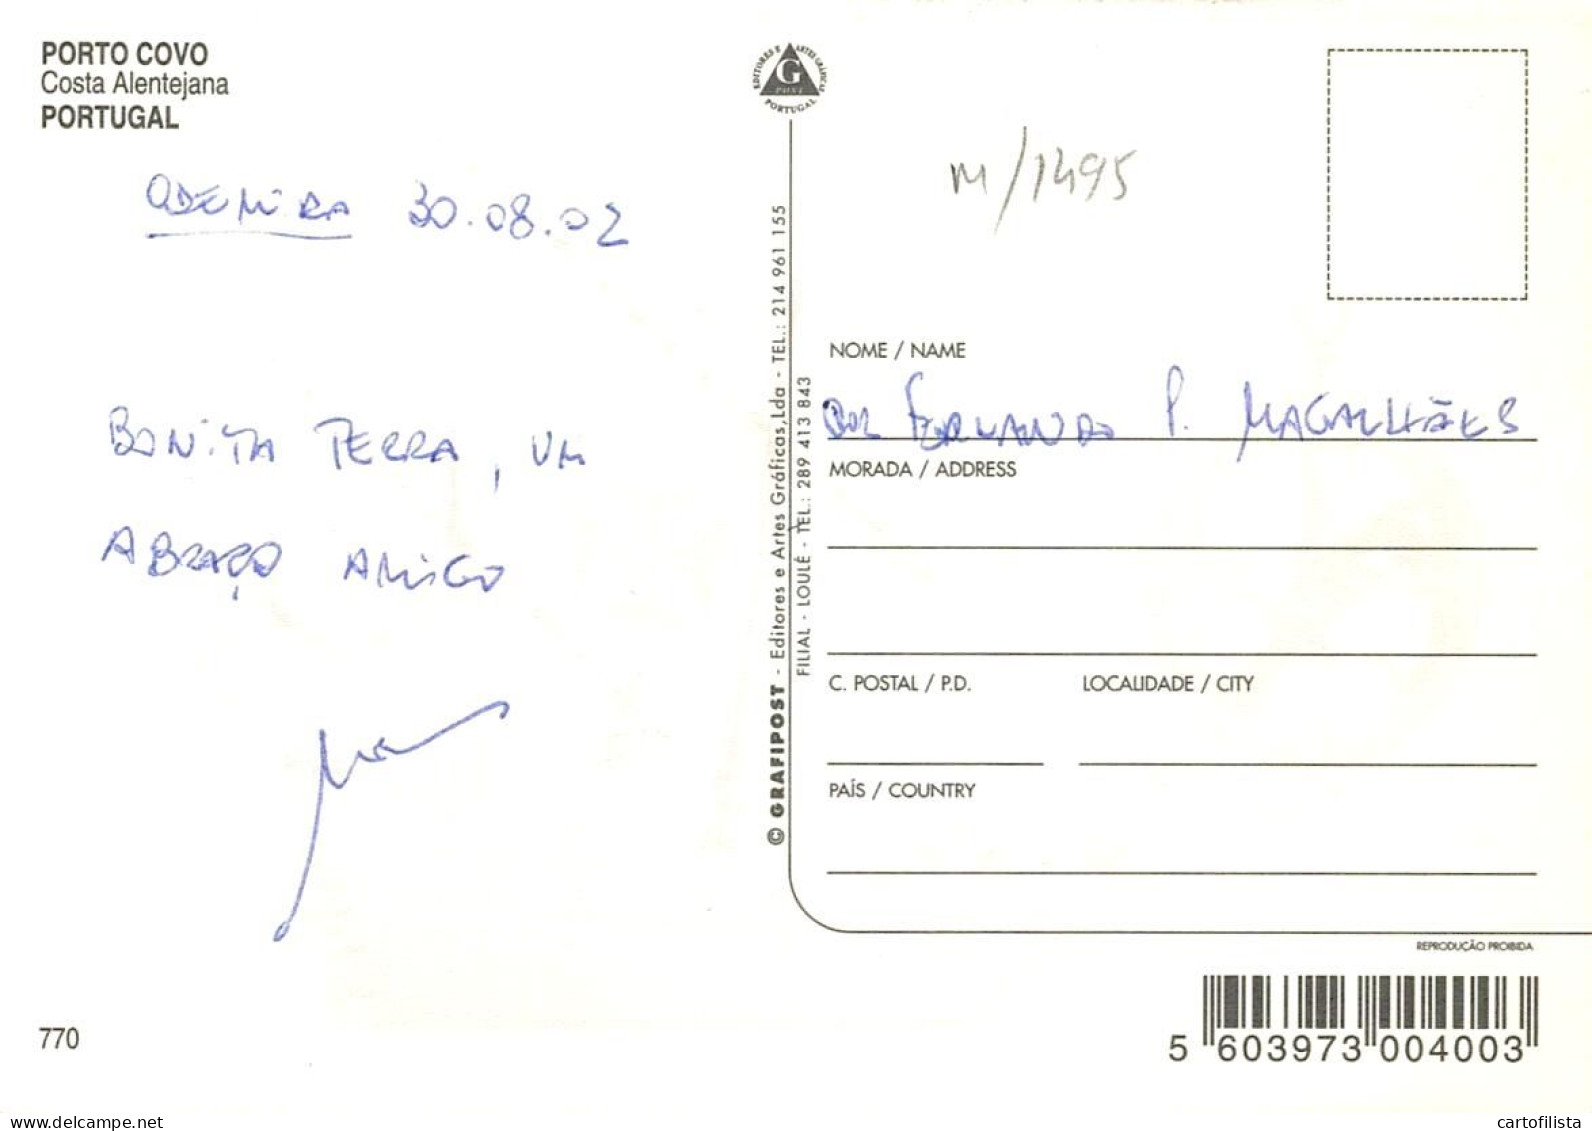 PORTO COVO
Costa Alentejana
PORTUGAL
ODEMIRA 30.08.02
BONITA TERRA, UM
ABRAÇO AMIGO
770
EDITORES E ARTES GRÁFICAS
G
POST
PORTUGAL
© GRAFIPOST - Editores e Artes Gráficas,Lda - TEL.: 214 961 155
FILIAL - LOULÉ - TEL.: 289 413 843
M/1495
NOME / NAME
FERNANDO P. MAGALHÃES
MORADA / ADDRESS
C. POSTAL / P.D. LOCALIDADE / CITY
PAÍS / COUNTRY
REPRODUÇÃO PROIBIDA
5 603973 004003
www.delcampe.net
cartofilista